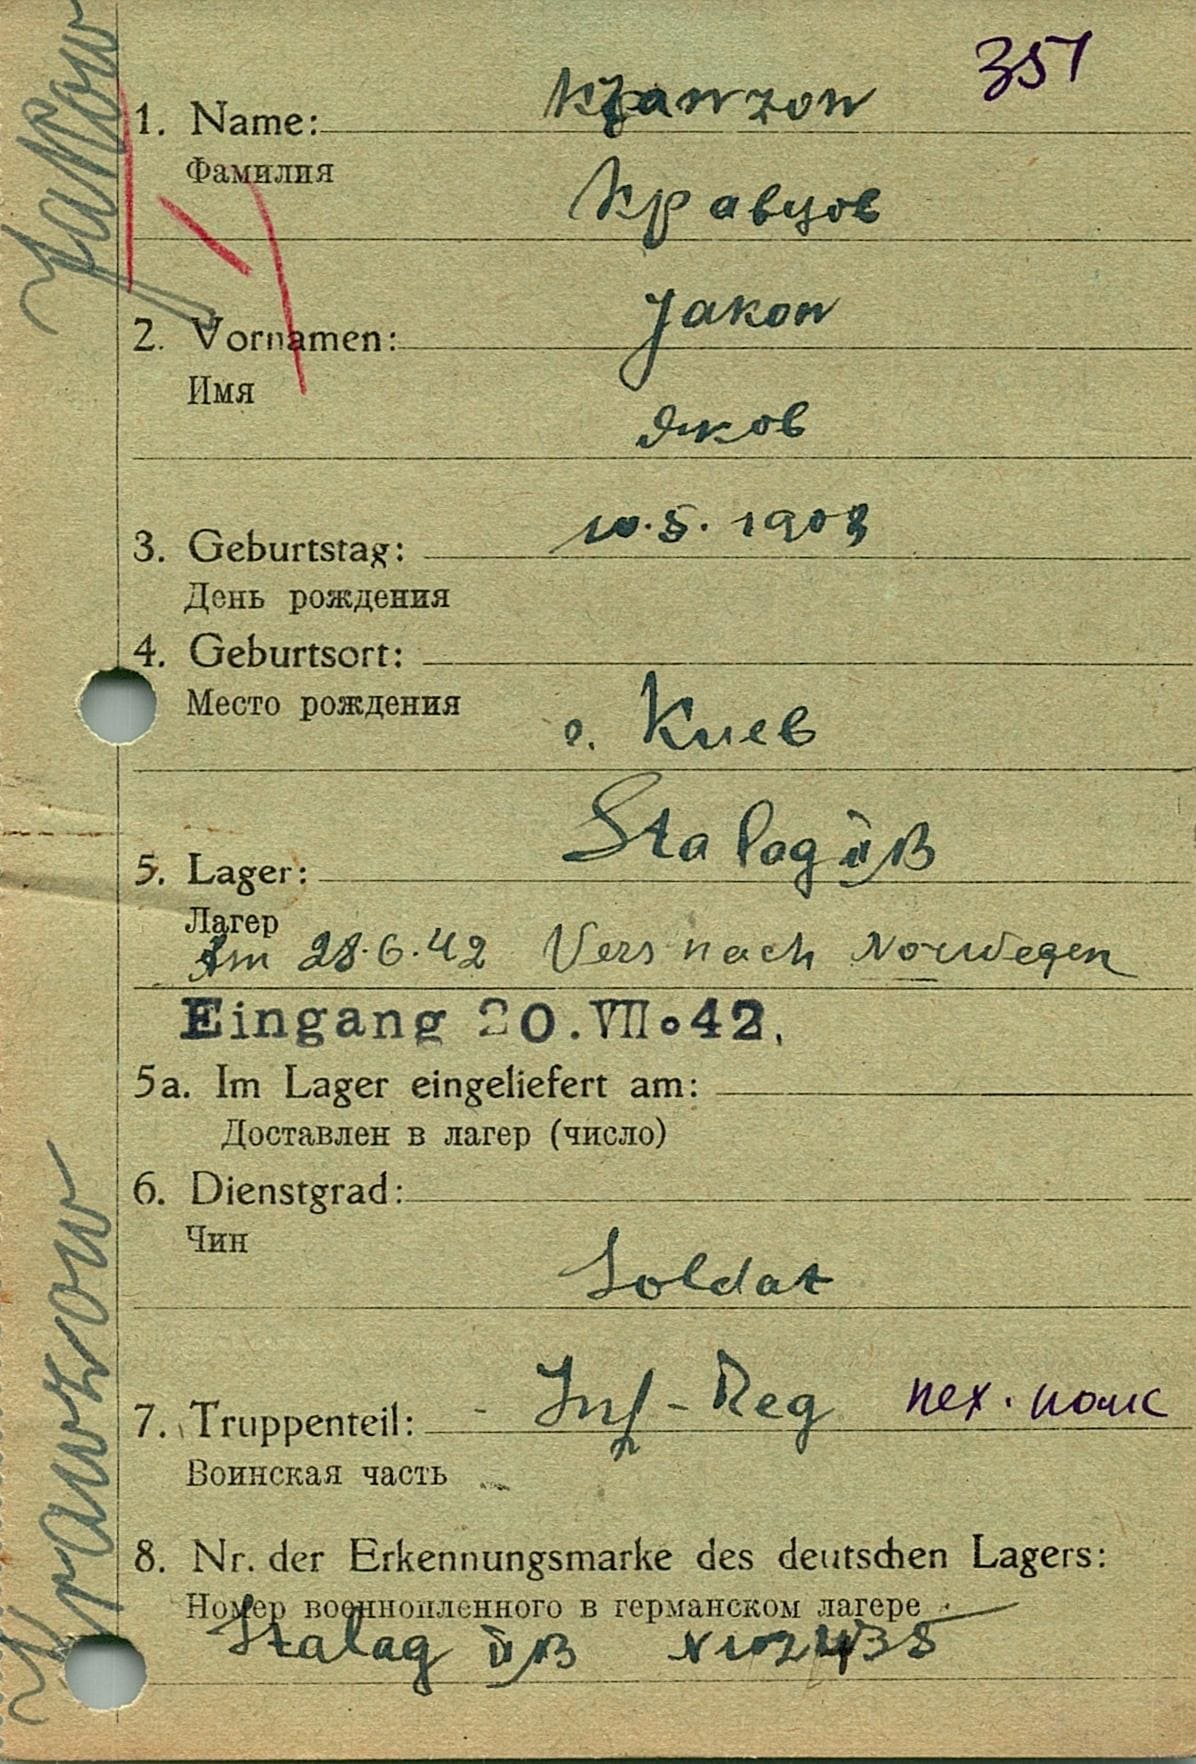 351
1. Name: Krawzow
Фамилия
Кравцов
2. Vornamen: Jakow
Имя
Яков
3. Geburtstag: 10.5.1903
День рождения
4. Geburtsort:
Место рождения
г. Киев
5. Lager: Stalag II B
Лагер
Am 28.6.42 Vers nach Norwegen
Eingang 20.VII.42.
5a. Im Lager eingeliefert am:
Доставлен в лагер (число)
6. Dienstgrad:
Чин
Soldat
7. Truppenteil: - Inf-Reg пех. полк
Воинская часть
8. Nr. der Erkennungsmarke des deutschen Lagers:
Номер военнопленного в германском лагере
Stalag II B
Krawzow
Jakow